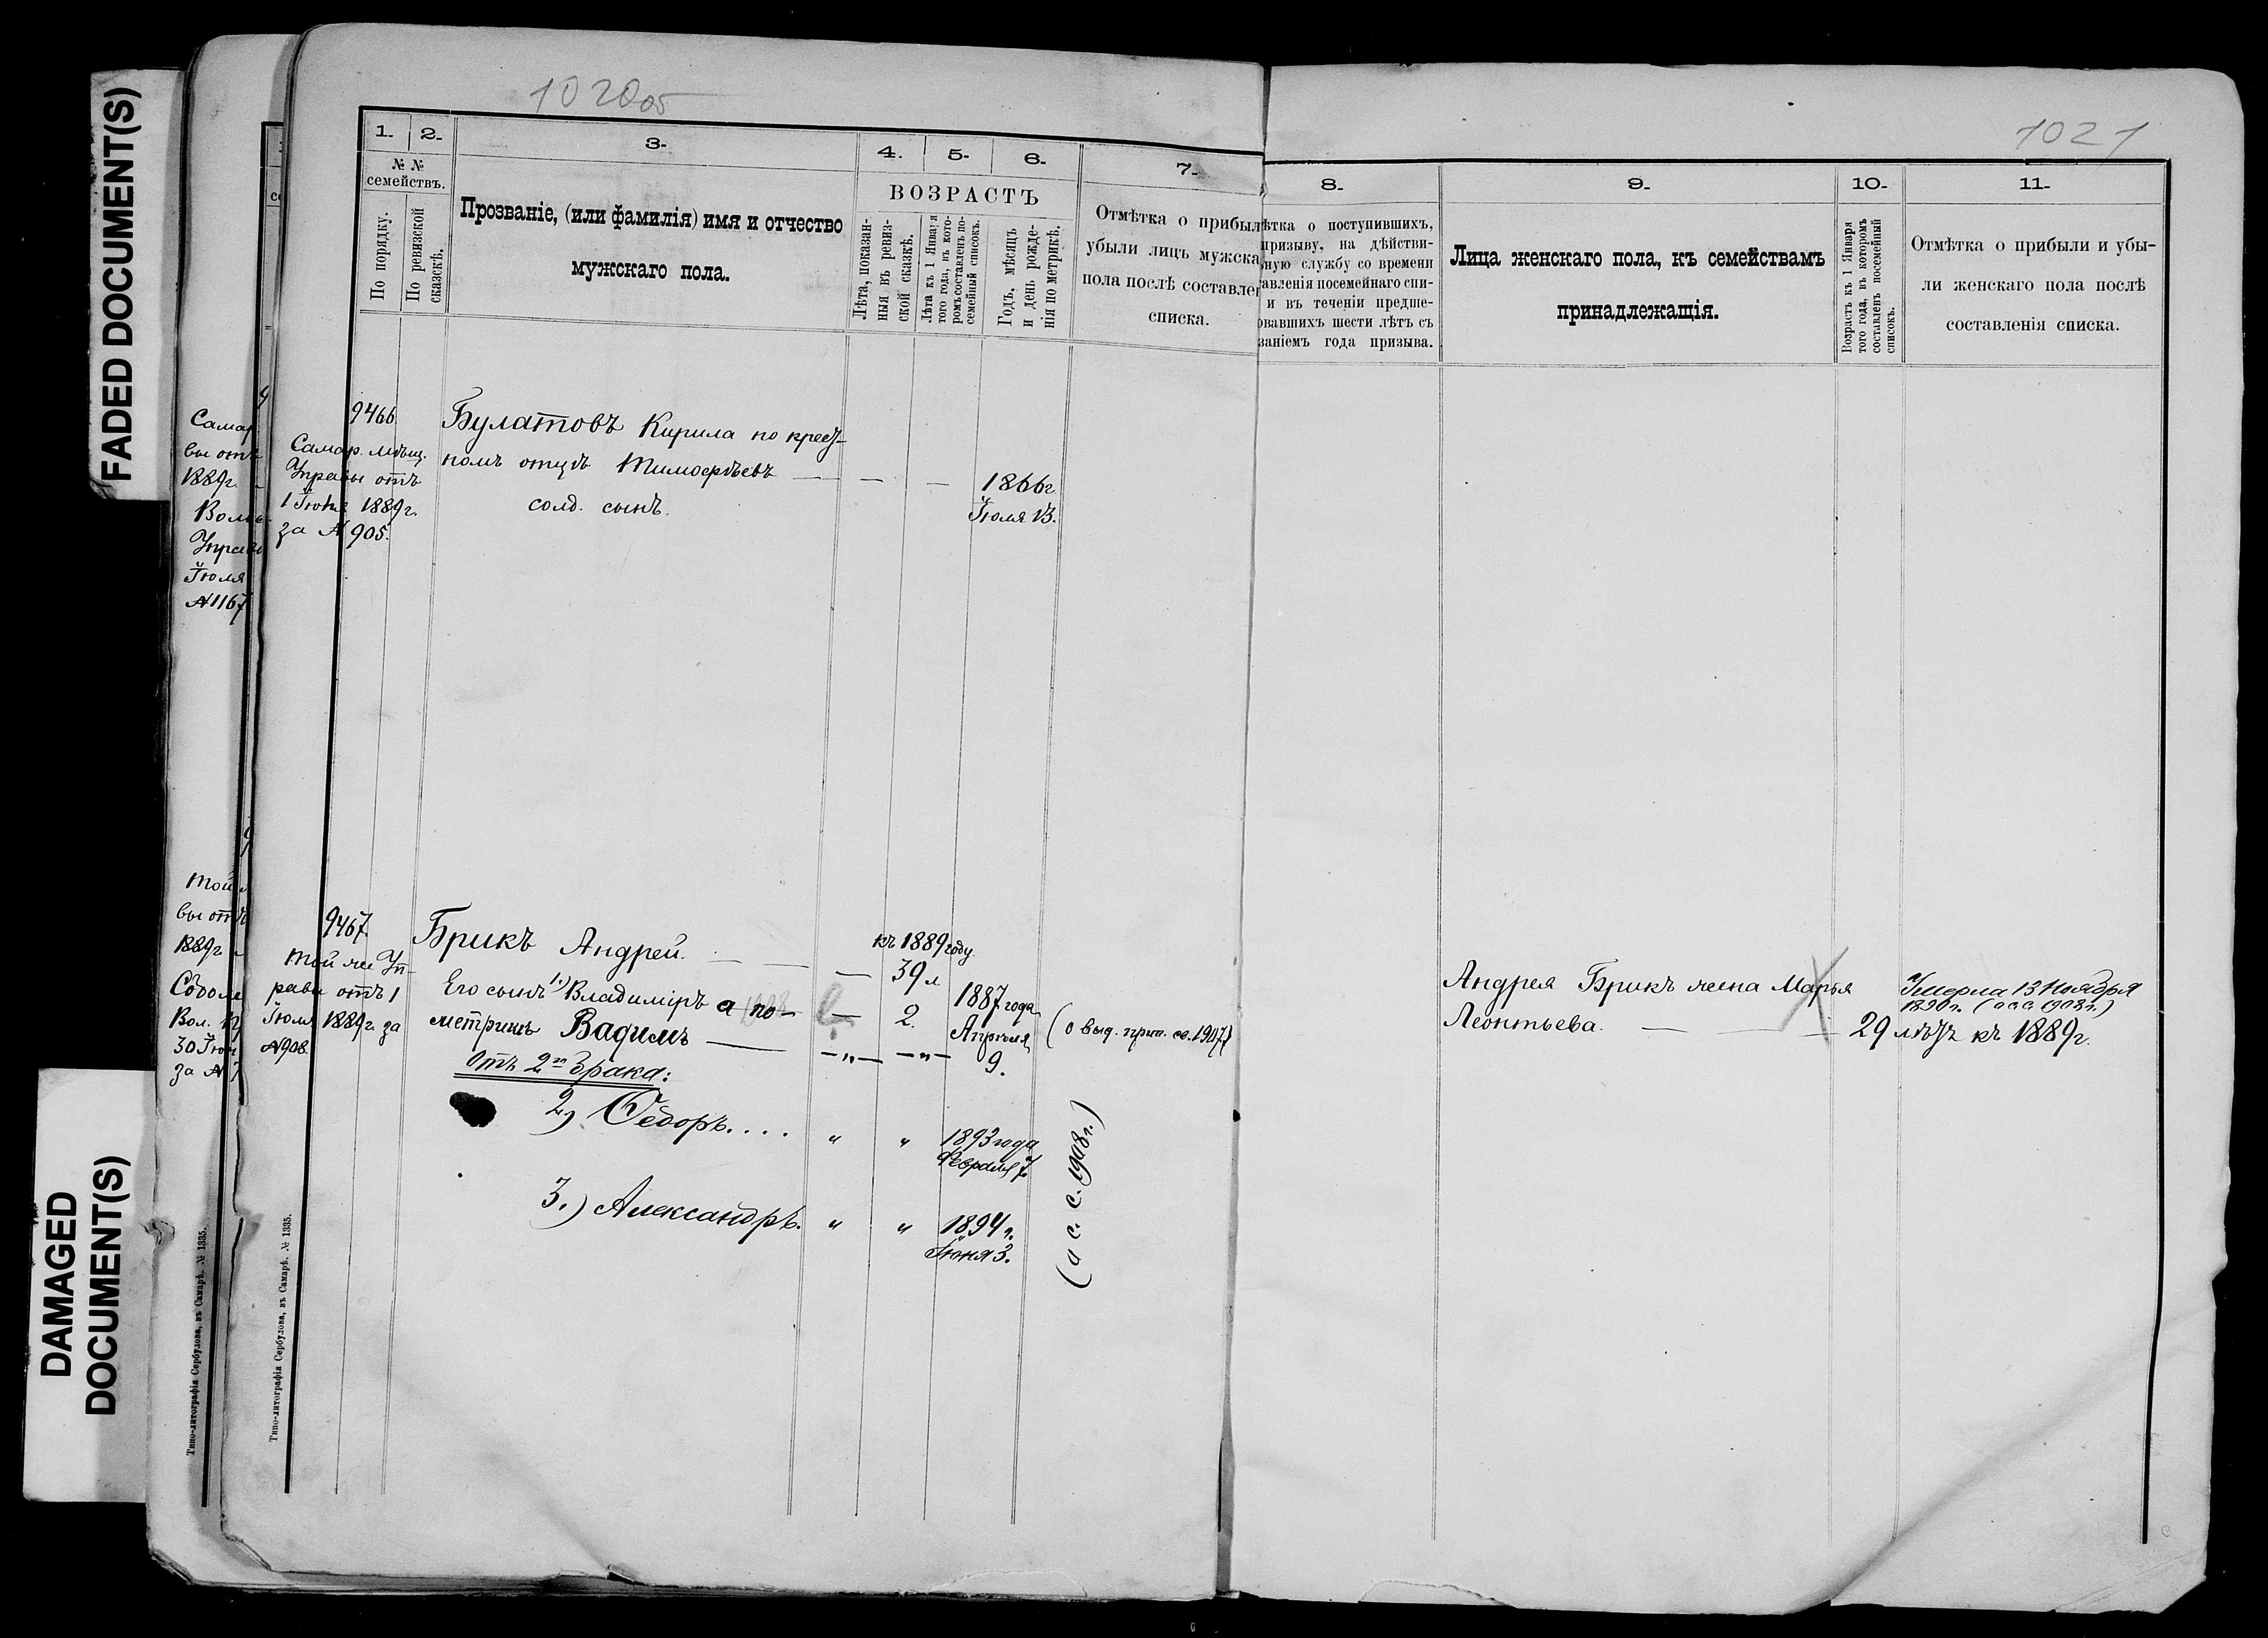 FADED DOCUMENT(S)
DAMAGED
DOCUMENT(S)
1020об
1.
2.
3.
4.
5.
6.
7.
№ №
семействъ.
По порядку.
По ревизской
сказкѣ.
Прозваніе, (или фамилія) имя и отчество
мужскаго пола.
ВОЗРАСТЪ
Лѣта, показан-
ныя въ ревиз-
ской сказкѣ.
Лѣта къ 1 Января
того года, въ кото-
ромъ составленъ по-
семейный списокъ.
Годъ, мѣсяцъ
и день рожде-
нія по метрикѣ.
Отмѣтка о прибыл
убыли лицъ мужска
пола послѣ составлен
списка.
Самар
вы отъ
1889г.
Воль
Управ
Іюля
№1167
9466
Самар. мѣщ.
Управы отъ
1 Іюля 1889г.
за № 905.
Булатовъ Кирила по крест-
номъ отцѣ Тимофѣевъ
солд. сынъ.
1866г
Іюля 13.
Той
вы отъ
1889г.
Вол.
30 Іюн.
за №
9467.
Той же Уп-
равы отъ 1
Іюля 1889г. за
№908.
Брикъ Андрей.
къ 1889 году
39 л
Его сынъ 1) Владиміръ а по-
метрикѣ Вадимъ
2.
1887 года
Апрѣля
9.
(о выд. прип. св. 1907)
Отъ 2го брака:
2) Ѳедоръ....
" "
1893 года
Февраля 7.
3.) Александръ.
" "
1894 г.
Іюня 3.
(а с. с. 1908 г.)
Типо-литографія Сербулова, въ Самарѣ. № 1335.
Типо-литографія Сербулова, въ Самарѣ. № 1335.
1021
8.
9.
10.
11.
ѣтка о поступившихъ,
призыву, на дѣйстви-
ную службу со времени
авленія посемейнаго спи-
и въ теченіи предше-
овавшихъ шести лѣтъ съ
заніемъ года призыва.
Лица женскаго пола, къ семействамъ
принадлежащія.
Возрастъ къ 1 Января
того года, въ которомъ
составленъ посемейный
списокъ.
Отмѣтка о прибыли и убы-
ли женскаго пола послѣ
составленія списка.
Андрея Брикъ жена Марья
Леонтьева.
29 лѣтъ къ 1889 г.
Умерла 13 Ноября
1890 г. (а с с 1908 г.)